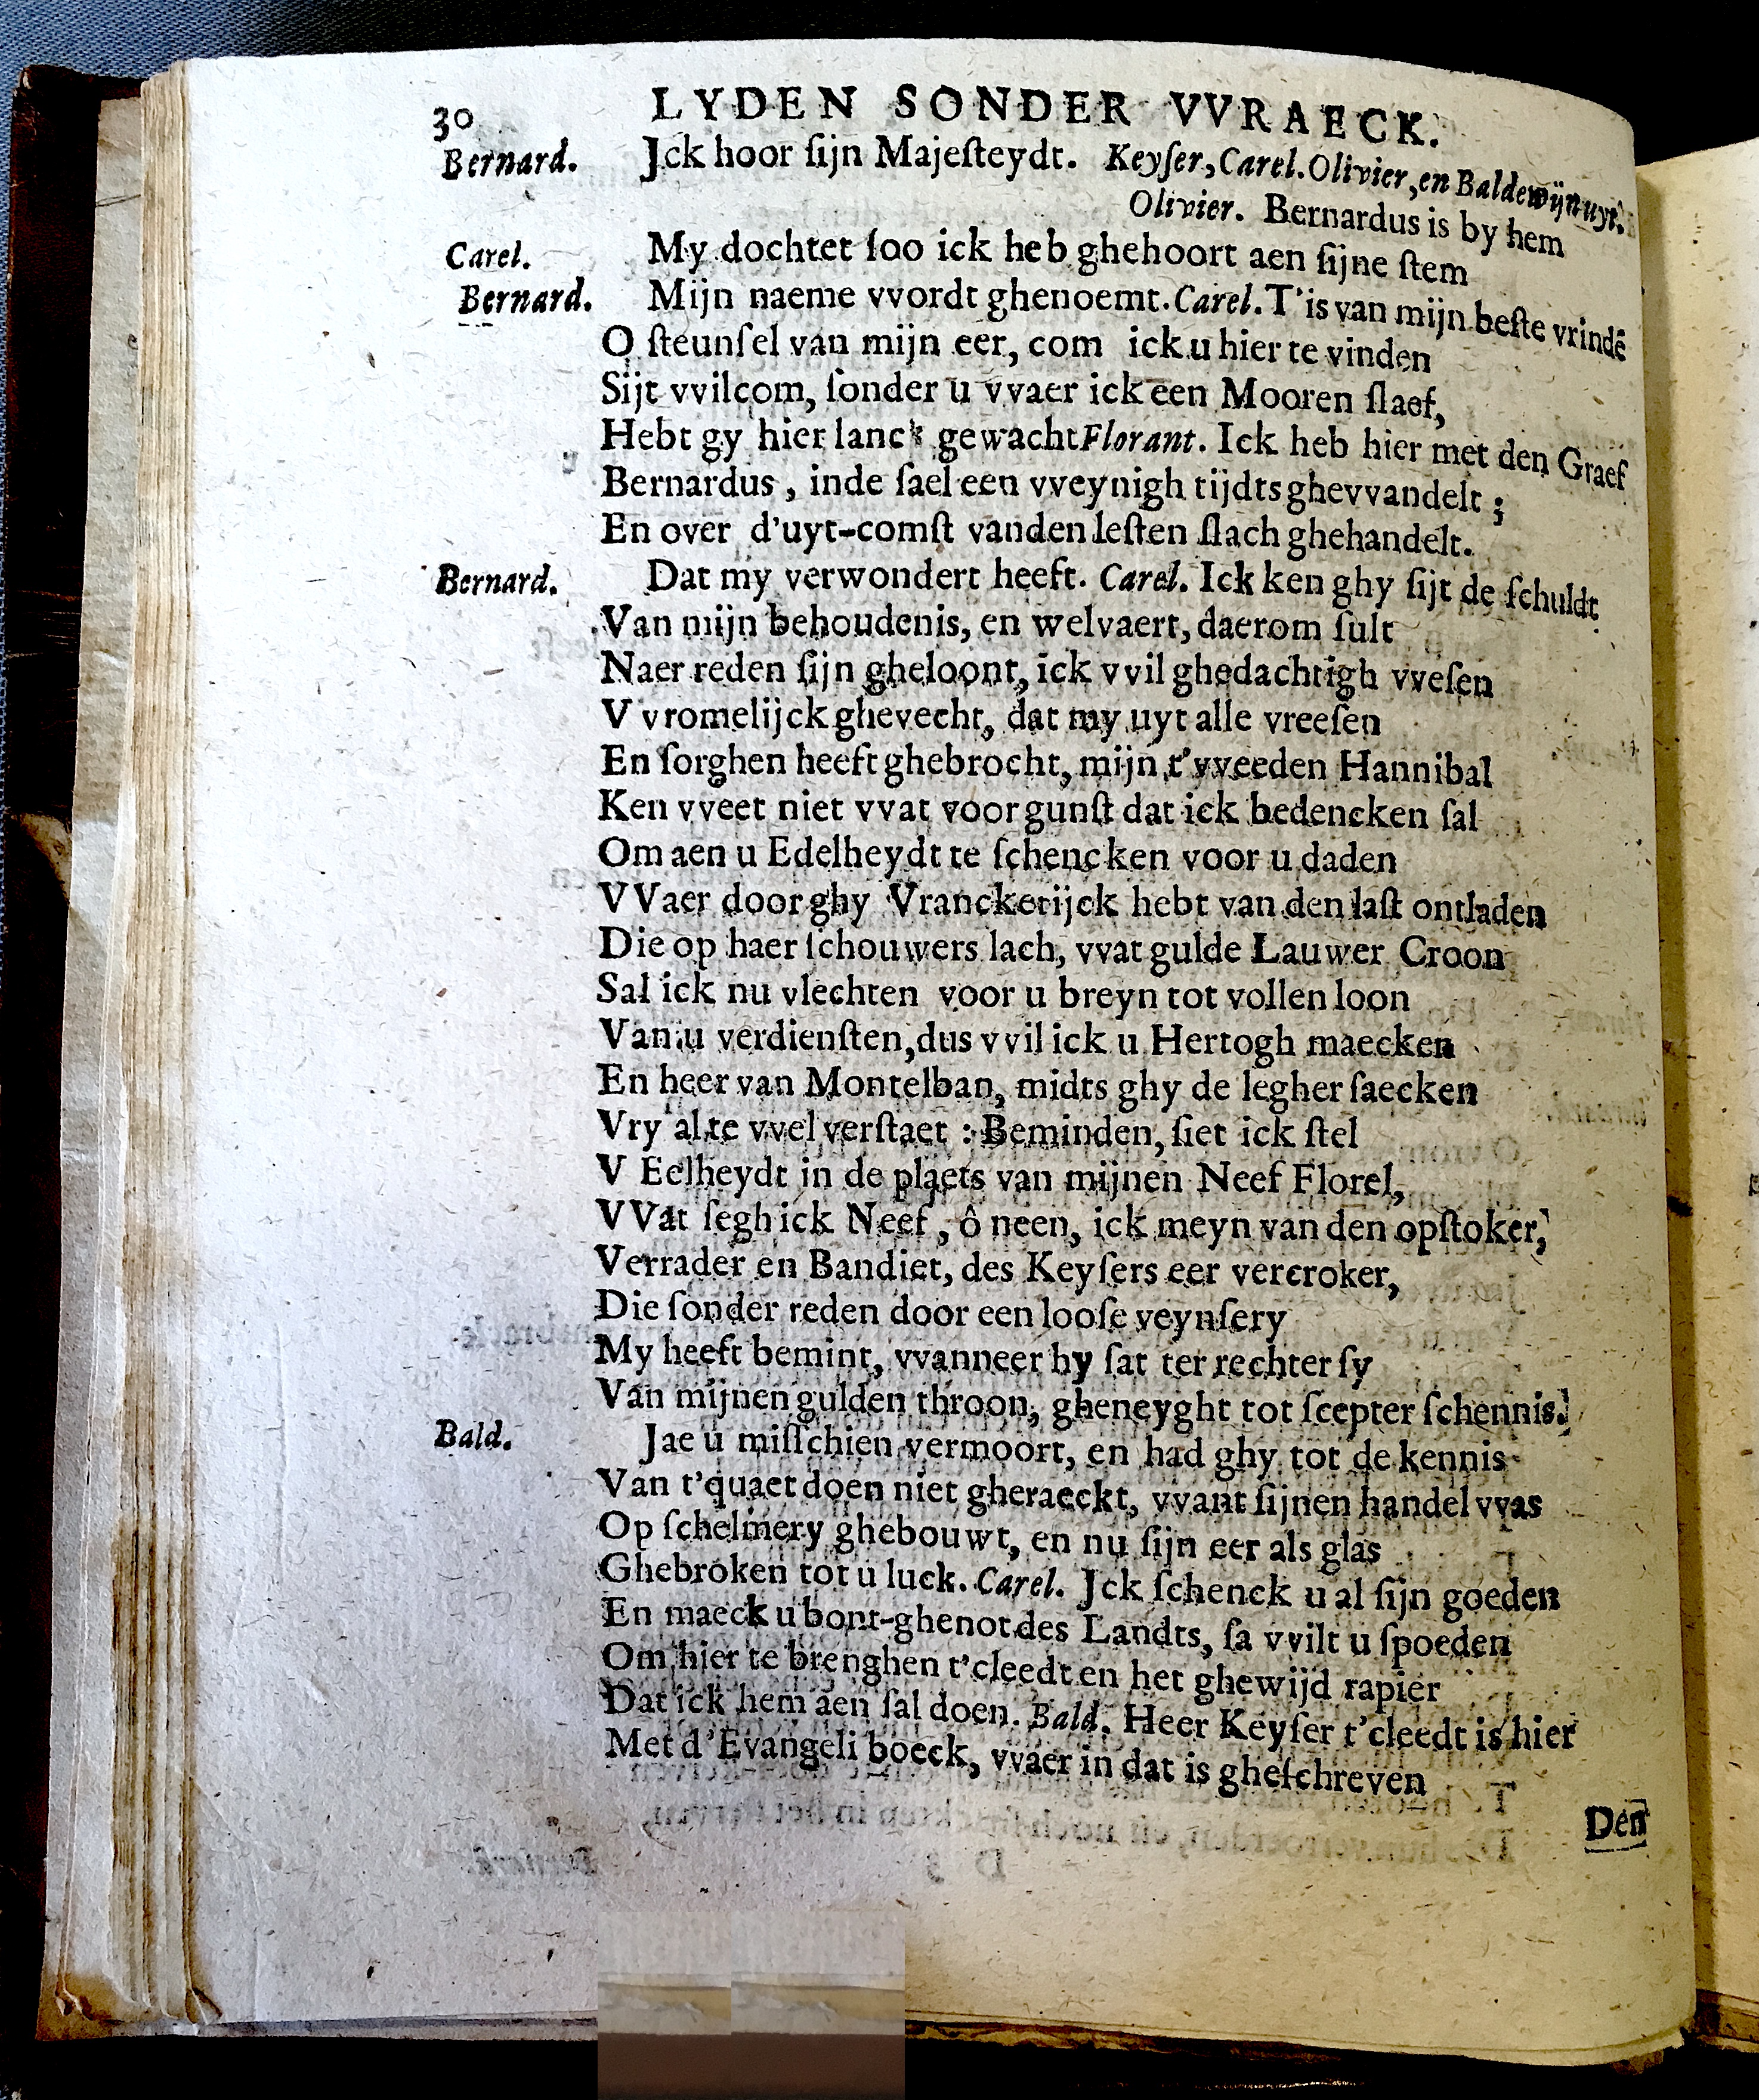 30 LYDEN SONDER VVRAECK.
Bernard. Jck hoor ſijn Majeſteydt. Keyſer, Carel. Olivier, en Baldewijn uyt.
Olivier. Bernardus is by hem
Carel. My dochtet ſoo ick heb ghehoort aen ſijne ſtem
Bernard. Mijn naeme vvordt ghenoemt. Carel. T'is van mijn beſte vrindē
O ſteunſel van mijn eer, com ick u hier te vinden
Sijt vvilcom, ſonder u vvaer ick een Mooren ſlaef,
Hebt gy hier lanck gewacht Florant. Ick heb hier met den Graef
Bernardus, inde ſael een vveynigh tijdts ghevvandelt;
En over d'uyt-comſt vanden leſten ſlach ghehandelt.
Bernard. Dat my verwondert heeft. Carel. Ick ken ghy ſijt de ſchuldt
Van mijn behoudenis, en welvaert, daerom ſult
Naer reden ſijn gheloont, ick vvil ghedachtigh vveſen
V vromelijck ghevecht, dat my uyt alle vreeſen
En ſorghen heeft ghebrocht, mijn t'vveeden Hannibal
Ken vveet niet vvat voor gunſt dat ick bedencken ſal
Om aen u Edelheydt te ſchencken voor u daden
VVaer door ghy Vranckerijck hebt van den laſt ontladen
Die op haer ſchouwers lach, vvat gulde Lauwer Croon
Sal ick nu vlechten voor u breyn tot vollen loon
Van u verdienſten, dus vvil ick u Hertogh maecken
En heer van Montelban, midts ghy de legher ſaecken
Vry al te vvel verſtaet : Beminden, ſiet ick ſtel
V Eelheydt in de plaets van mijnen Neef Florel,
VVat ſegh ick Neef, ô neen, ick meyn van den opſtoker,
Verrader en Bandiet, des Keyſers eer vercroker,
Die ſonder reden door een looſe veynſery
My heeft bemint, vvanneer hy ſat ter rechter ſy
Van mijnen gulden throon, gheneyght tot ſcepter ſchennis.
Bald. Jae u miſſchien vermoort, en had ghy tot de kennis
Van t'quaet doen niet gheraeckt, vvant ſijnen handel vvas
Op ſchelmery ghebouwt, en nu ſijn eer als glas
Ghebroken tot u luck. Carel. Jck ſchenck u al ſijn goeden
En maeck u bont-ghenot des Landts, ſa vvilt u ſpoeden
Om hier te brenghen t'cleedt en het ghewijd rapier
Dat ick hem aen ſal doen. Bald. Heer Keyſer t'cleedt is hier
Met d'Evangeli boeck, vvaer in dat is gheſchreven
Den